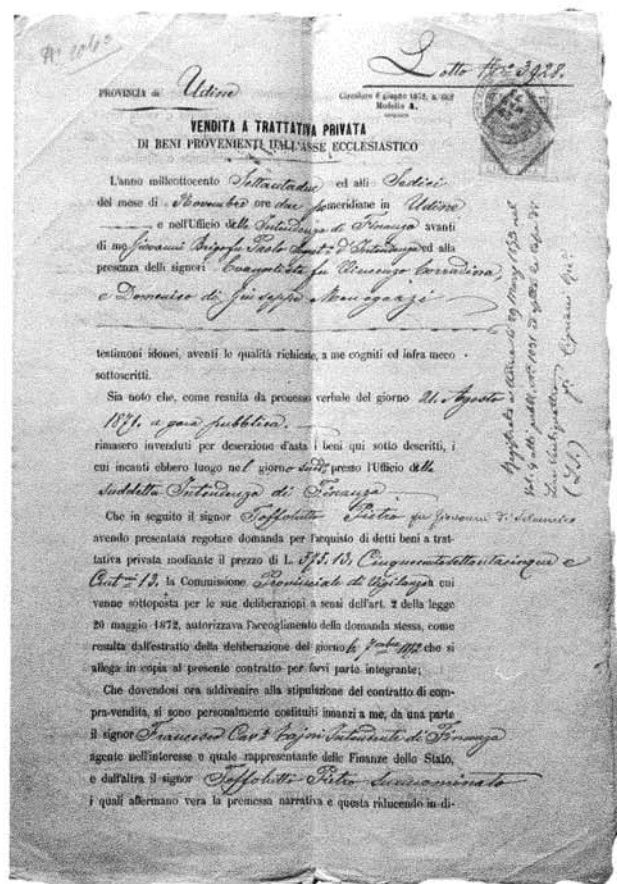 Lotto N.º 3928.
PROVINCIA di Udine
Modello A.
VENDITA A TRATTATIVA PRIVATA
DI BENI PROVENIENTI DALL'ASSE ECCLESIASTICO
L'anno milleottocento Settantadue ed alli Sedici
del mese di Novembre ore due pomeridiane in Udine
e nell'Ufficio della Intendenza di Finanza avanti
di me Giovanni Paolo d'Intendenza ed alla
presenza delli signori Evangelista fu Vincenzo Corradina,
e Domenico di Giuseppe
testimoni idonei, aventi le qualità richieste, a me cogniti ed infra meco
sottoscritti.
Sia noto che, come risulta da processo verbale del giorno 21. Agosto
1871. a gara pubblica.
rimasero invenduti per deserzione d'asta i beni qui sotto descritti, i
cui incanti ebbero luogo nel giorno presso l'Ufficio della
suddetta Intendenza di Finanza
Che in seguito il signor Toffolutti Pietro fu Giovanni di
avendo presentata regolare domanda per l'acquisto di detti beni a trat-
tativa privata mediante il prezzo di L. 575.13. Cinquecentosettantacinque e
Cent. 13. la Commissione Provinciale di Vigilanza cui
venne sottoposta per le sue deliberazioni a sensi dell'art. 2 della legge
20 maggio 1872, autorizzava l'accoglimento della domanda stessa, come
risulta dall'estratto della deliberazione del giorno 7bre 1872 che si
allega in copia al presente contratto per farvi parte integrante;
Che dovendosi ora addivenire alla stipulazione del contratto di com-
pra-vendita, si sono personalmente costituiti innanzi a me, da una parte
il signor Francesco Cav. Tajni Intendente di Finanza
agente nell'interesse e quale rappresentante delle Finanze dello Stato,
e dall'altra il signor Toffolutti Pietro sunnominato
i quali affermano vera la premessa narrativa e questa riducendo in di-
(L.S.)